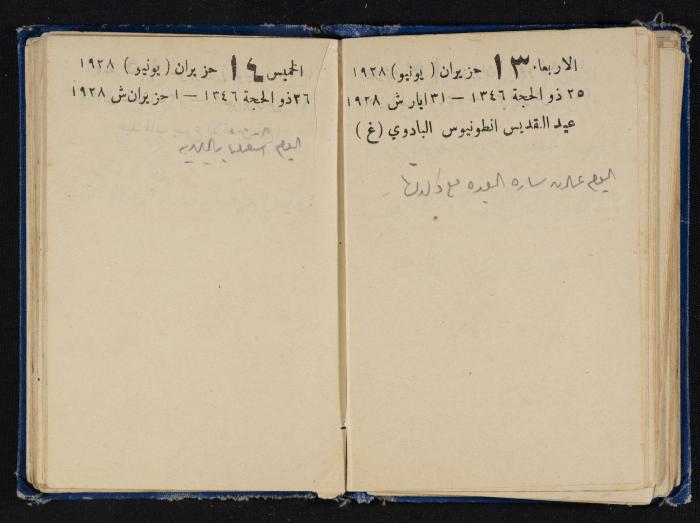 الاربعاء ١٣ حزيران ( يونيو) ١٩٢٨
٢٥ ذو الحجة ١٣٤٦ — ٣١ ايار ش ١٩٢٨
عيد القديس انطونيوس البادوي (غ)
اليوم ساره مع
الخميس ١٤ حزيران ( يونيو) ١٩٢٨
٢٦ ذو الحجة ١٣٤٦ — ١ حزيران ش ١٩٢٨
اليوم